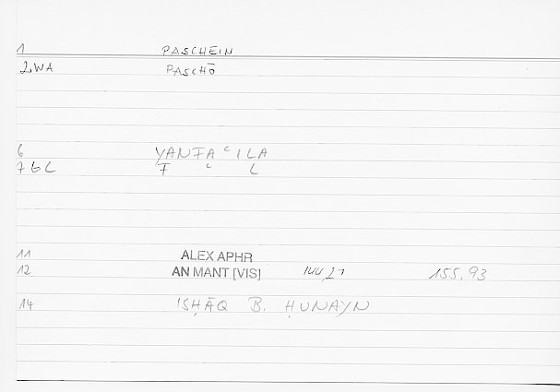 1 PASCHEIN
2,WA PASCHŌ
6 YANFAʿILA
7 GL F ʿ L
11 ALEX APHR
12 AN MANT [VIS] 144,21 155.93
14 ʾISḤĀQ B. ḤUNAYN